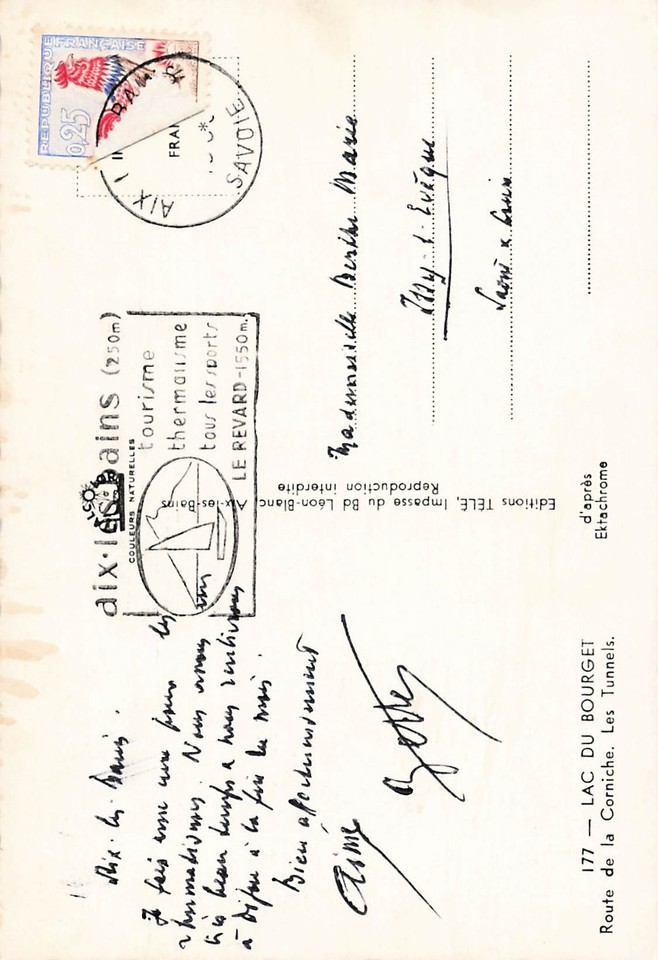 Aix-les-Bains.
Je fais une cure pour les
rhumatismes. Nous avons un
très beau temps
à Dijon à la fin du mois.
Bien affectueusement
Aimé
177 — LAC DU BOURGET
Route de la Corniche. Les Tunnels.
aix·les·bains (250m)
tourisme
thermalisme
tous les sports
LE REVARD-1550m.
COULEURS NATURELLES
Editions TÉLÉ, Impasse du Bd Léon-Blanc, Aix-les-Bains
Reproduction interdite
d'après
Ektachrome
REPUBLIQUE FRANÇAISE
0,25
AIX
SAVOIE
Mademoiselle Berthe Marie
Issy-l-Evêque
Saône & Loire